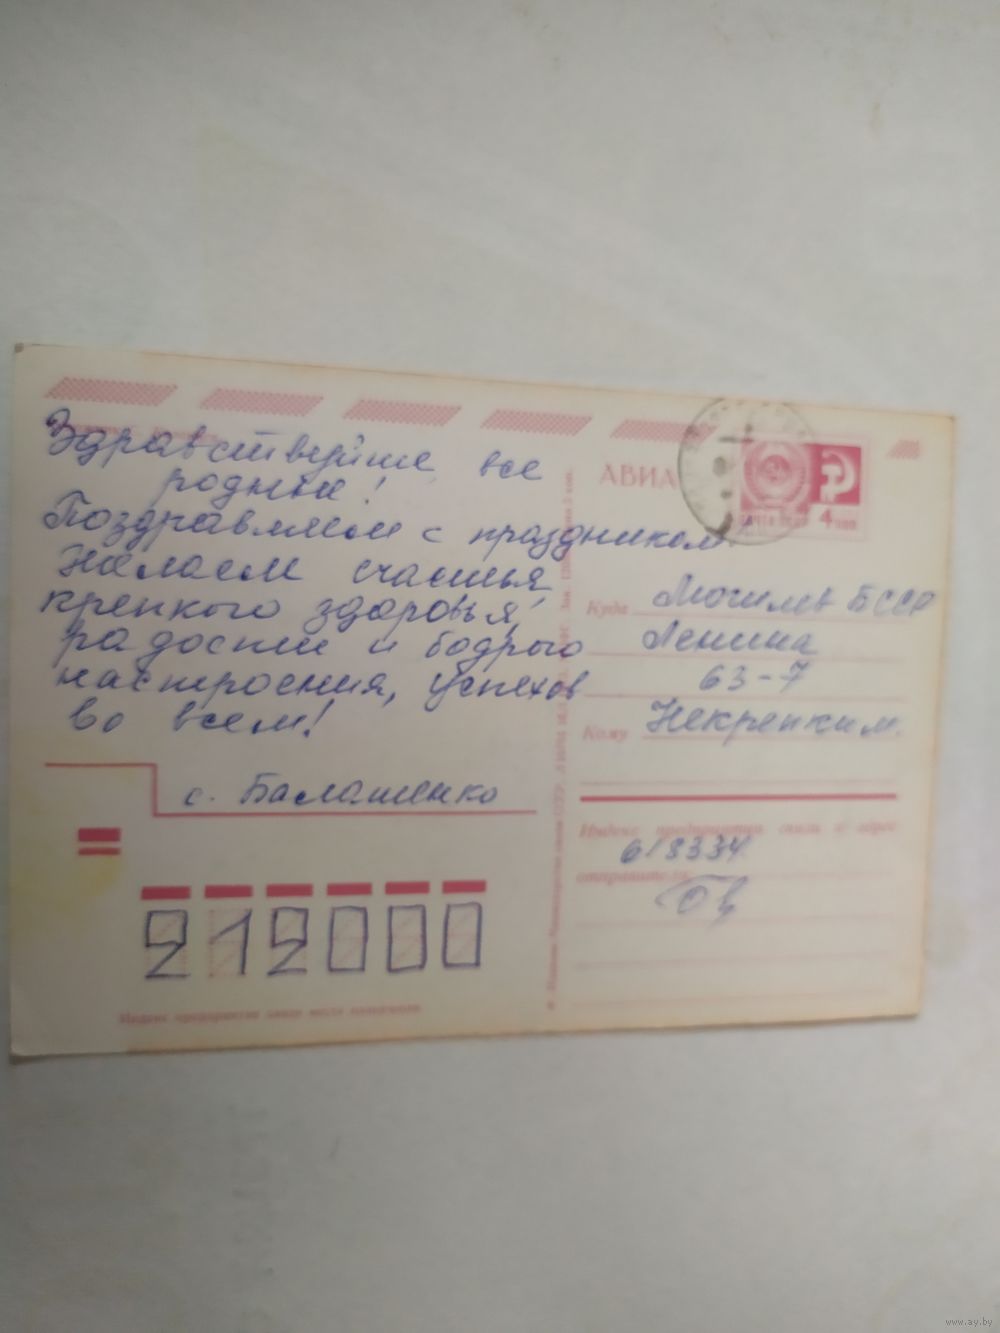 Здравствуйте все
родные!
Поздравляем с праздником.
Желаем счастья,
крепкого здоровья,
радости и бодрого
настроения, успехов
во всем!
с. Балашенко
212000
Индекс предприятия связи места назначения
АВИА
ПОЧТА СССР
4 коп
Куда Могилев БССР
Ленина
63-7
Кому Некрепким.
Индекс предприятия связи и адрес
618334
отправителя
www.ay.by